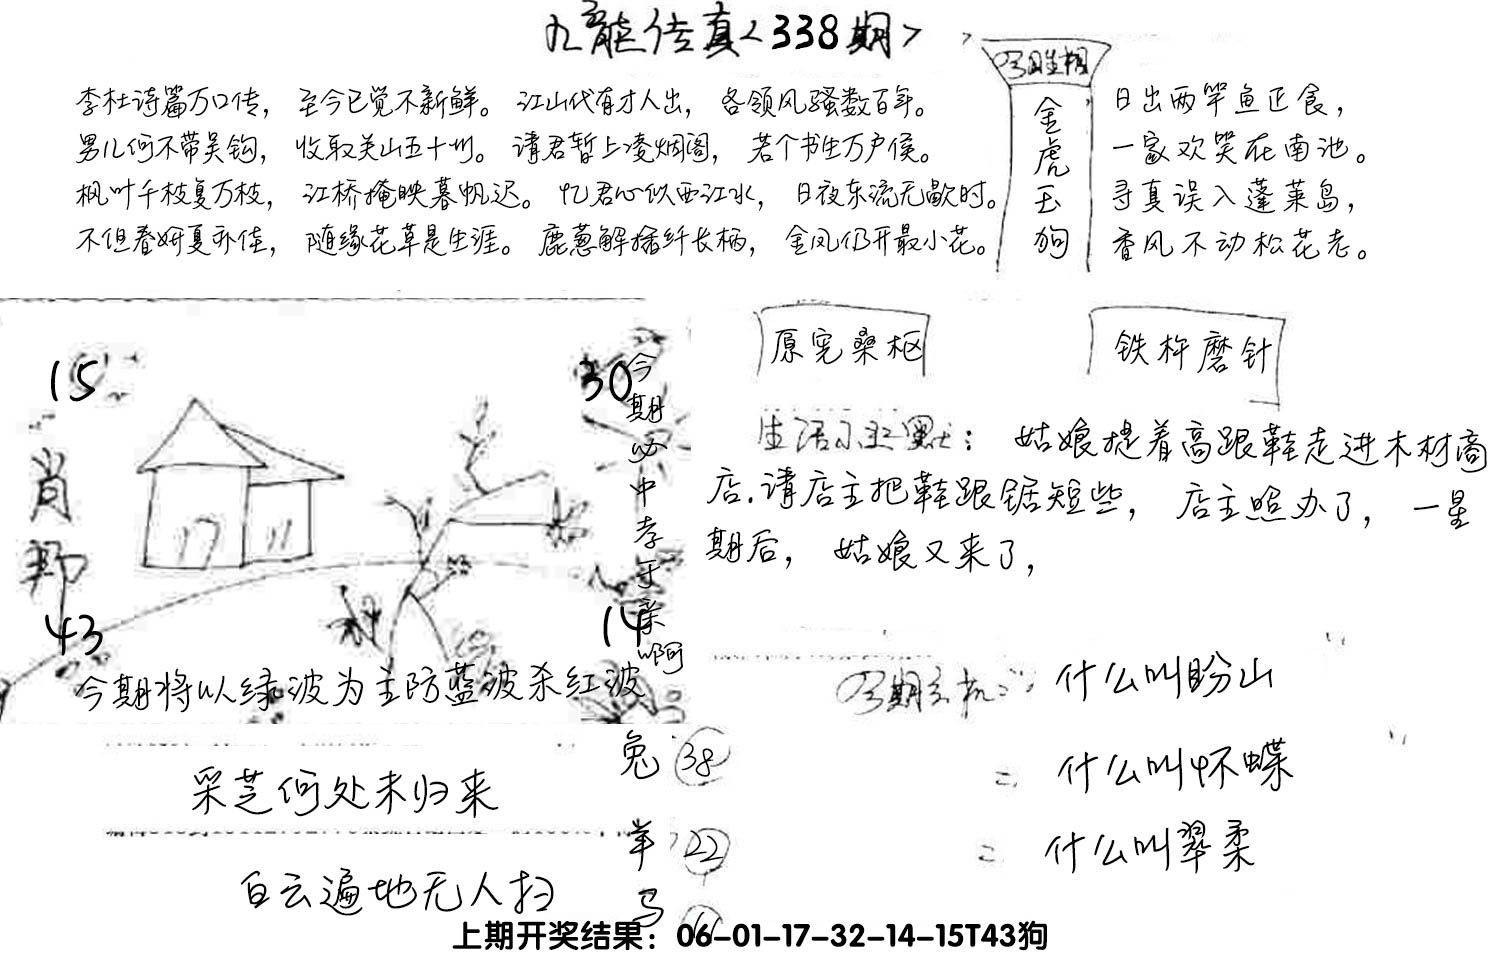 九龍传真<338期>
李杜诗篇万口传，至今已觉不新鲜。江山代有才人出，各领风骚数百年。
男儿何不带吴钩，收取关山五十州。请君暂上凌烟阁，若个书生万户侯。
枫叶千枝复万枝，江桥掩映暮帆迟。忆君心似西江水，日夜东流无歇时。
不但春妍夏亦佳，随缘花草是生涯。鹿葱解插纤长柄，金凤仍开最小花。
金虎玉狗
日出两竿鱼正食，
一家欢笑在南池。
寻真误入蓬莱岛，
香风不动松花老。
15
30
肖
43
14
今期必中孝于亲啊
今期将以绿波为主防蓝波杀红波
原宪桑枢
铁杵磨针
生活小幽默：姑娘提着高跟鞋走进木材商
店.请店主把鞋跟锯短些，店主照办了，一星
期后，姑娘又来了，
什么叫盼山
什么叫怀蝶
什么叫翠柔
采芝何处未归来
白云遍地无人扫
兔 38
羊 22
马
上期开奖结果：06-01-17-32-14-15T43狗